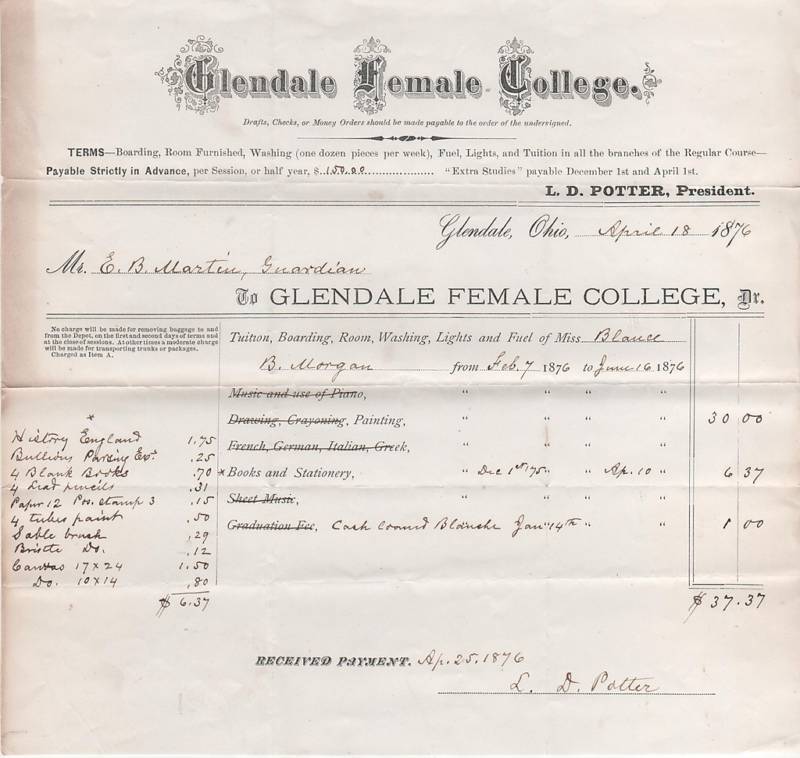 Glendale Female College.
Drafts, Checks, or Money Orders should be made payable to the order of the undersigned.
TERMS—Boarding, Room Furnished, Washing (one dozen pieces per week), Fuel, Lights, and Tuition in all the branches of the Regular Course—
Payable Strictly in Advance, per Session, or half year, $ 150.00 "Extra Studies" payable December 1st and April 1st.
L. D. POTTER, President.
Glendale, Ohio, April 18 1876
Mr. E. B. Martin, Guardian
To GLENDALE FEMALE COLLEGE, Dr.
No charge will be made for removing baggage to and
from the Depot, on the first and second days of terms and
at the close of sessions. At other times a moderate charge
will be made for transporting trunks or packages.
Charged as Item A.
Tuition, Boarding, Room, Washing, Lights and Fuel of Miss Blance
B. Morgan from Feb. 7 1876 to June 16 1876
Music and use of Piano, " " " "
Drawing, Crayoning, Painting, " " " " 30 00
French, German, Italian, Greek, " " " "
* Books and Stationery, " Dec 1st 75 " " Ap. 10 " " 6 37
Sheet Music, " " " "
Graduation Fee, Cash loaned Blanche Jany 14th " " 1 00
$ 37.37
*
History England 1.75
Bullions Parsing Exs. .25
4 Blank Books .70
4 Lead pencils .31
Paper 12 Pos. stamp 3 .15
4 tubes paint .50
Sable brush .29
Bristle Do. .12
Canvas 17 x 24 1.50
Do. 10 x 14 .80
$ 6.37
RECEIVED PAYMENT. Ap. 25. 1876
L. D. Potter